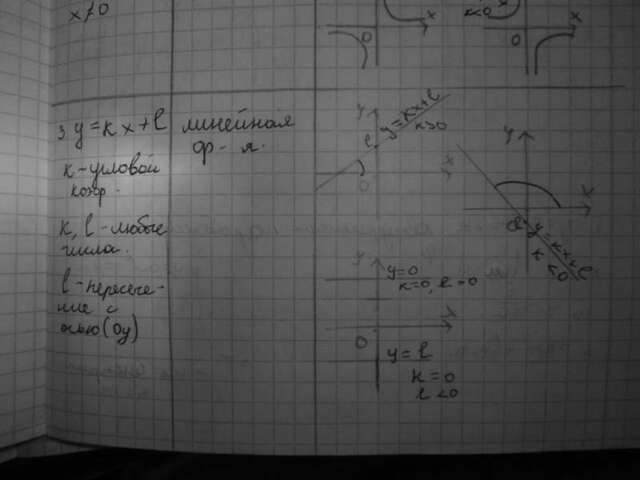 x≠0
x
0
k<0
x
0
3. y=kx+l
k-угловой
коэф.
k, l-любые
числа.
l-пересече-
ние с
осью (Oy)
линейная
ф-я.
y
l
y=kx+l
k>0
x
0
y
x
0
y=kx+l
k<0
y
y=0
k=0, l=0
x
0
y=l
k=0
l<0